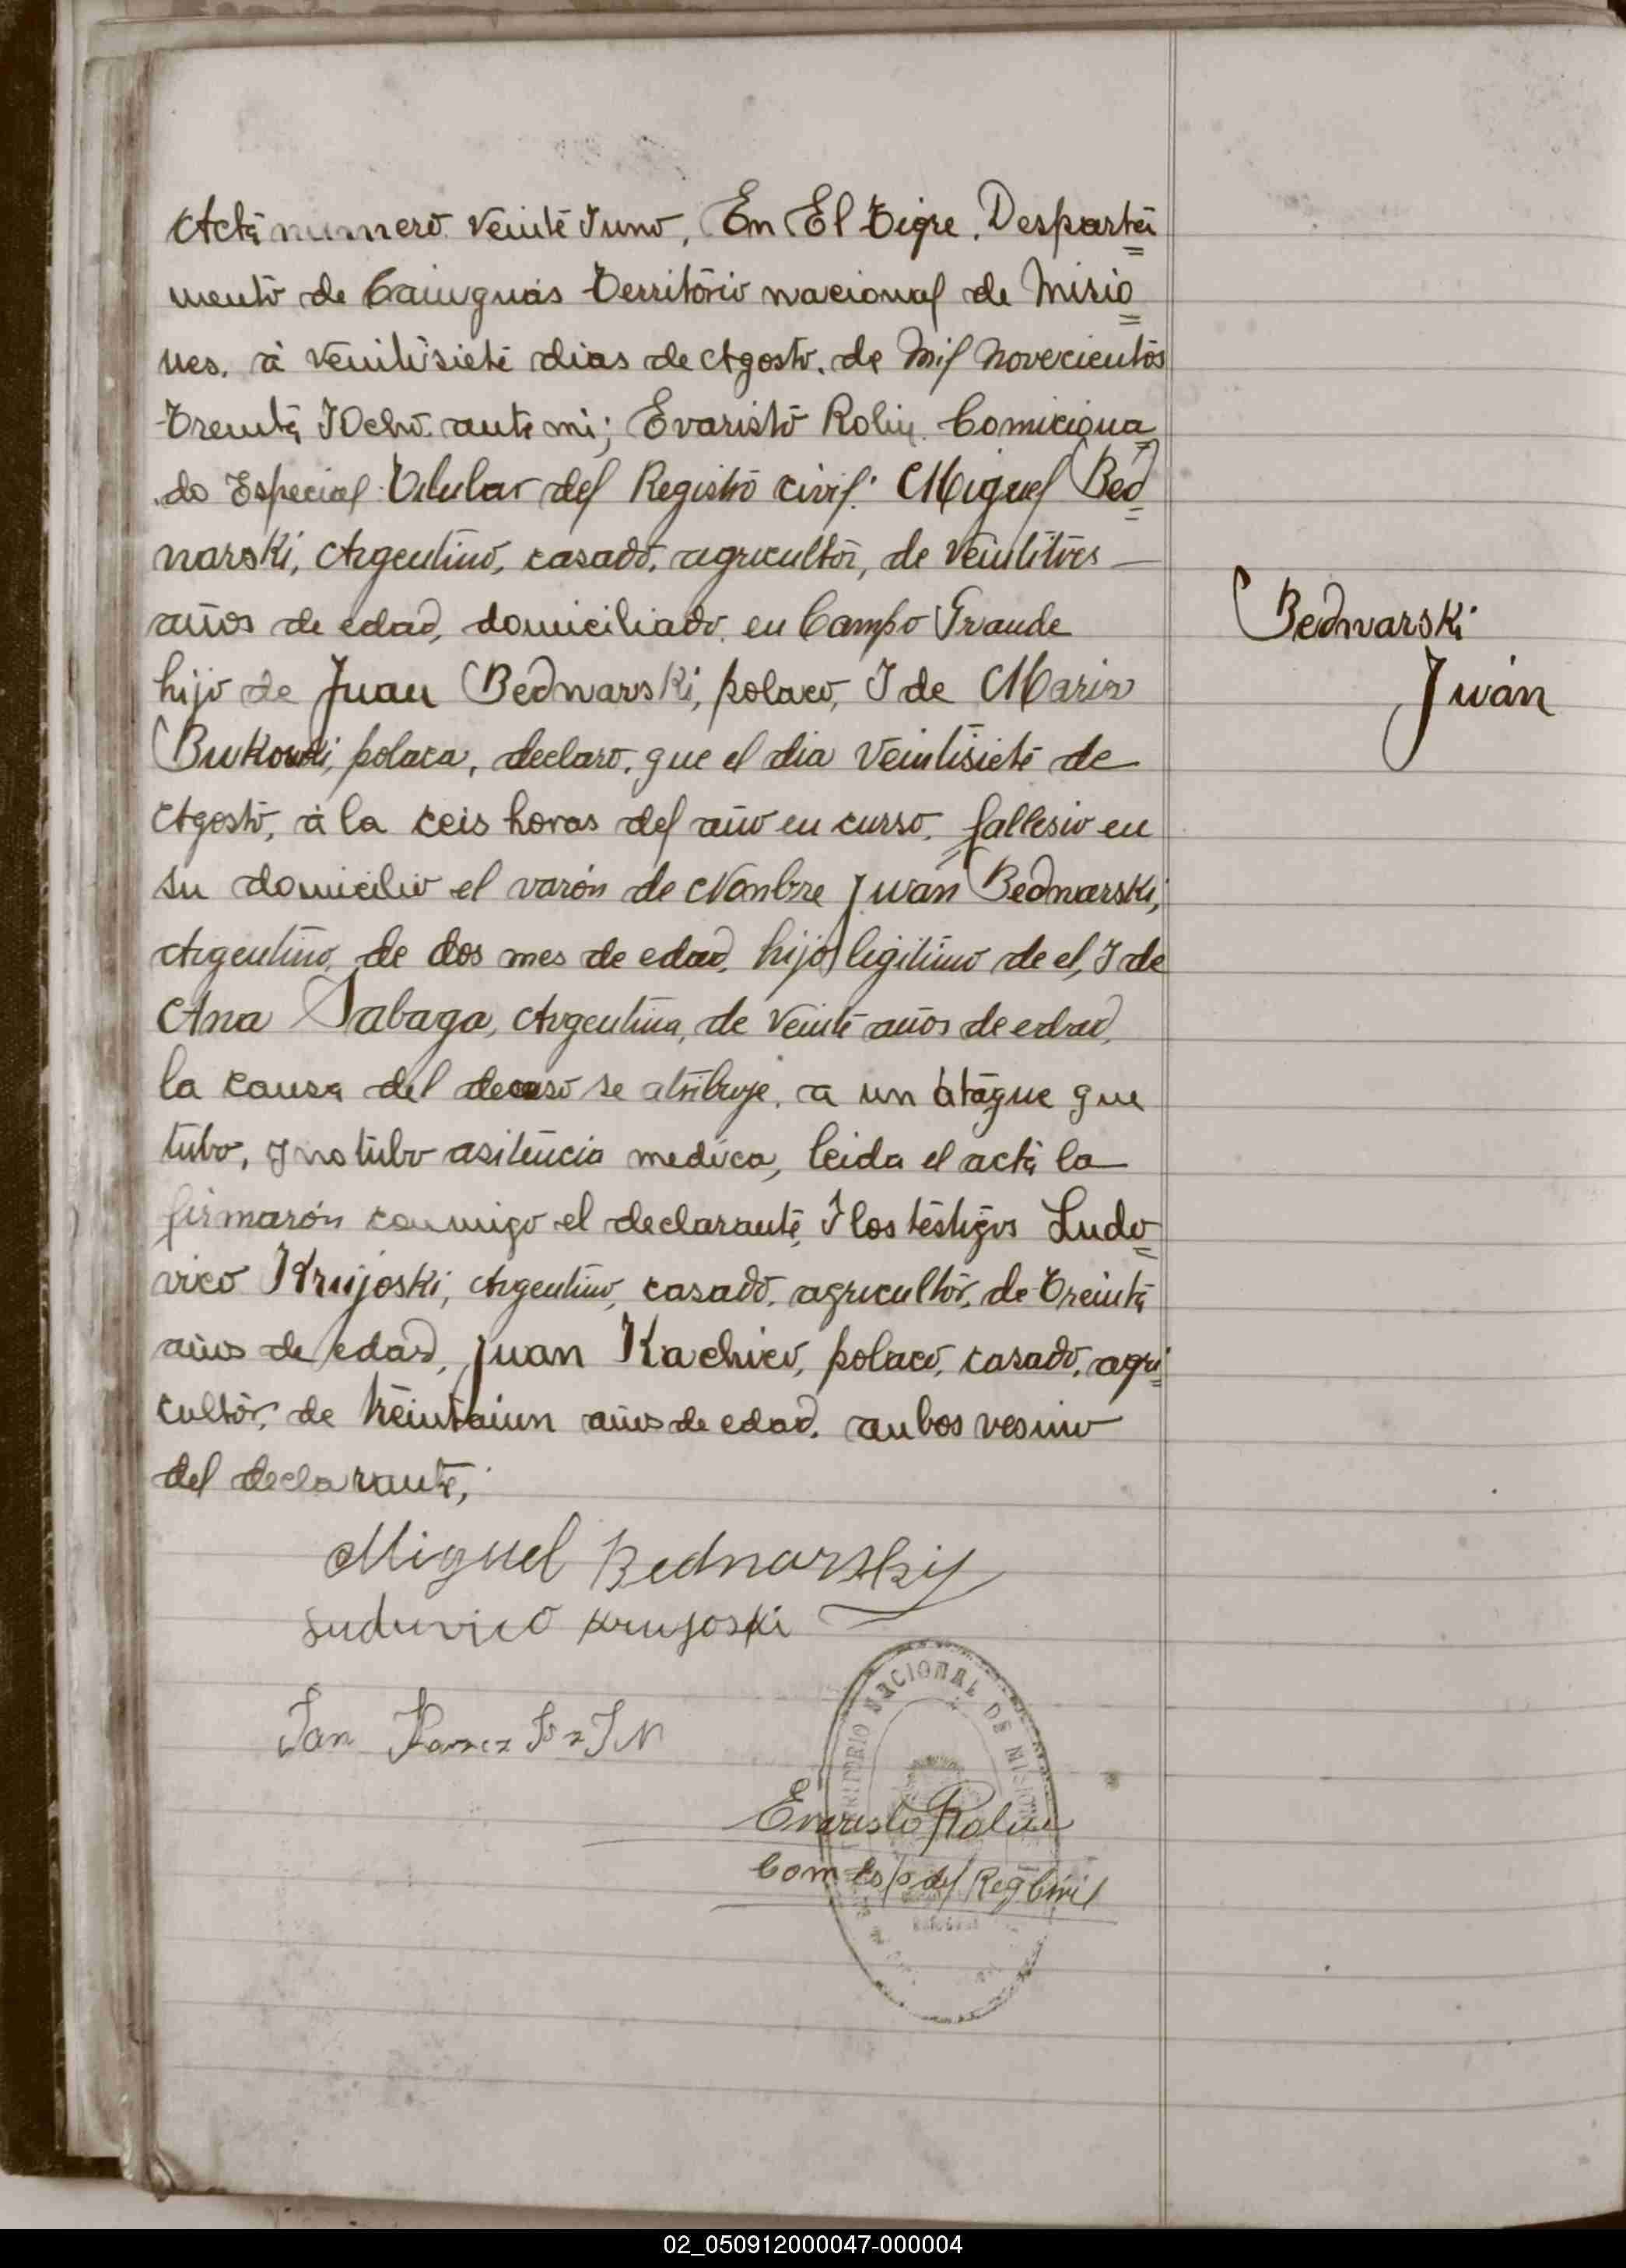 Acta numero veinte Iuno, En El Tigre. Desparta
mento de Cainguas Territorio nacional de Misio
nes. à veintisiete dias de Agosto. de mil novecientos
Trenta IOcho. ante mi; Evaristo Rolin. Comiciona
do Especial Titular del Registro civil: Miguel Bed
narski, Argentino, casado, agricultor, de veintitres
años de edad, domiciliado, en Campo Grande
hijo de Juan Bednarski, polaco, I de Maria
Bukowki, polaca, declaro, que el dia veintisiete de
Agosto, à la ceis horas del año en curso, fallesio en
su domicilio el varón de Nonbre Juan Bednarski,
Argentino, de dos mes de edad, hijo legitimo de el, I de
Ana Sabaga, Argentina, de veinte años de edad,
la causa del deceso se atribuye, a un ataque que
tubo, I no tubo asitencia medica, leida el acta la
firmarón conmigo el declarante, I los testigos Ludo
vico Krujoski, Argentino, casado, agricultor, de Treinta
años de edad, Juan Kachico, polaco, casado, agri
cultor, de treintaiun años de edad, anbos vesino
del declarante,
Bednarski
Juan
Miguel Bednarskij
Luduvico Krujoski
Jan
TERRITORIO NACIONAL DE MISIONES
Evaristo Rolin
Com Esp del Reg Civil
02_050912000047-000004